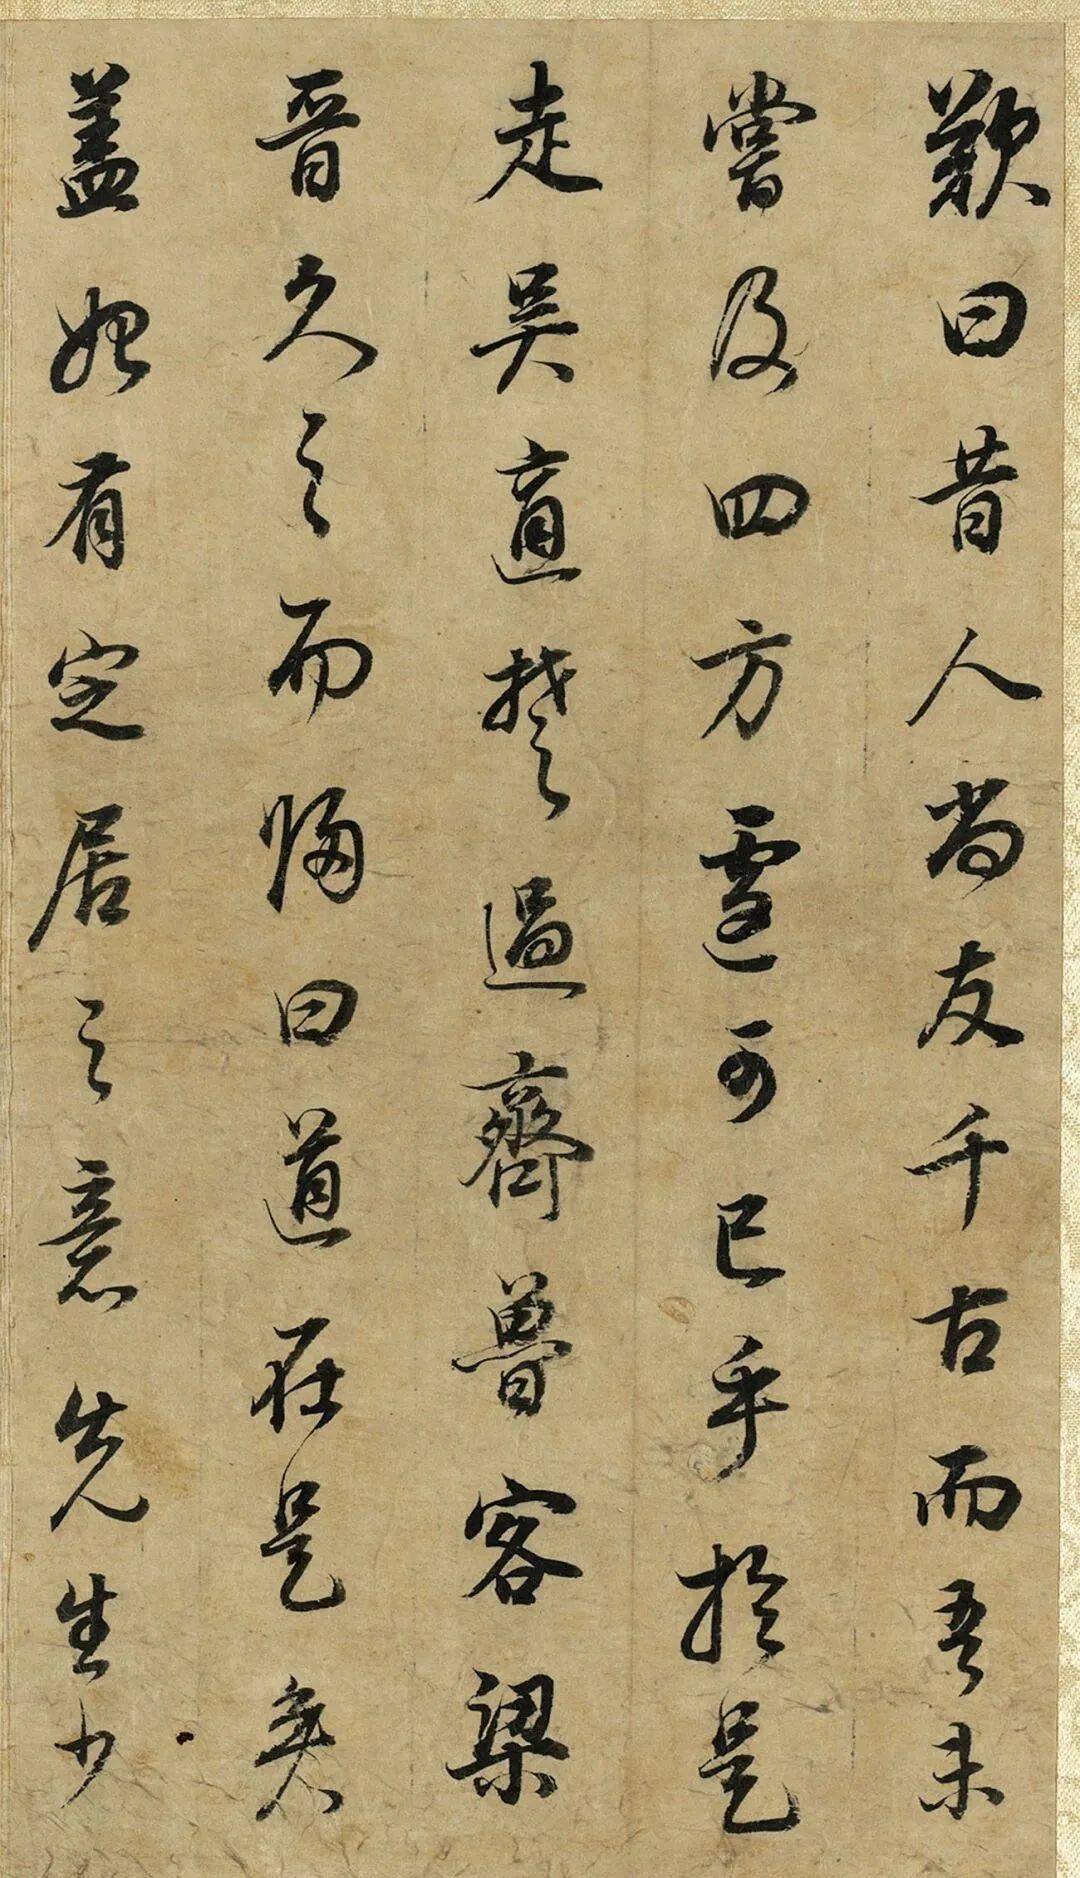 歎曰昔人尚友千古而吾未
嘗及四方遽可已乎於是
走吴適楚過齊魯客梁
晋久之而歸曰道在是矣
盖始有定居之意先生少